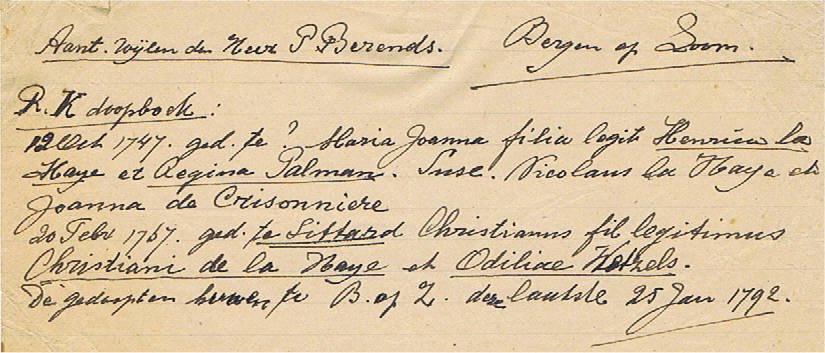 Aant. wijlen den Heer P. Berends. Bergen op Zoom.
R.K doopboek:
12 Oct 1747. ged. te ? Maria Joanna filia legit Henrici la
Haye et Regina Palman. Susc. Nicolaus la Haye et
Joanna de Crisonniere
20 Febr 1757. ged. te Sittard Christianus fil legitimus
Christiani de la Haye et Odiliae Wetzels.
De gedoopten te B. op Z. deze laatste 25 Jan 1792.